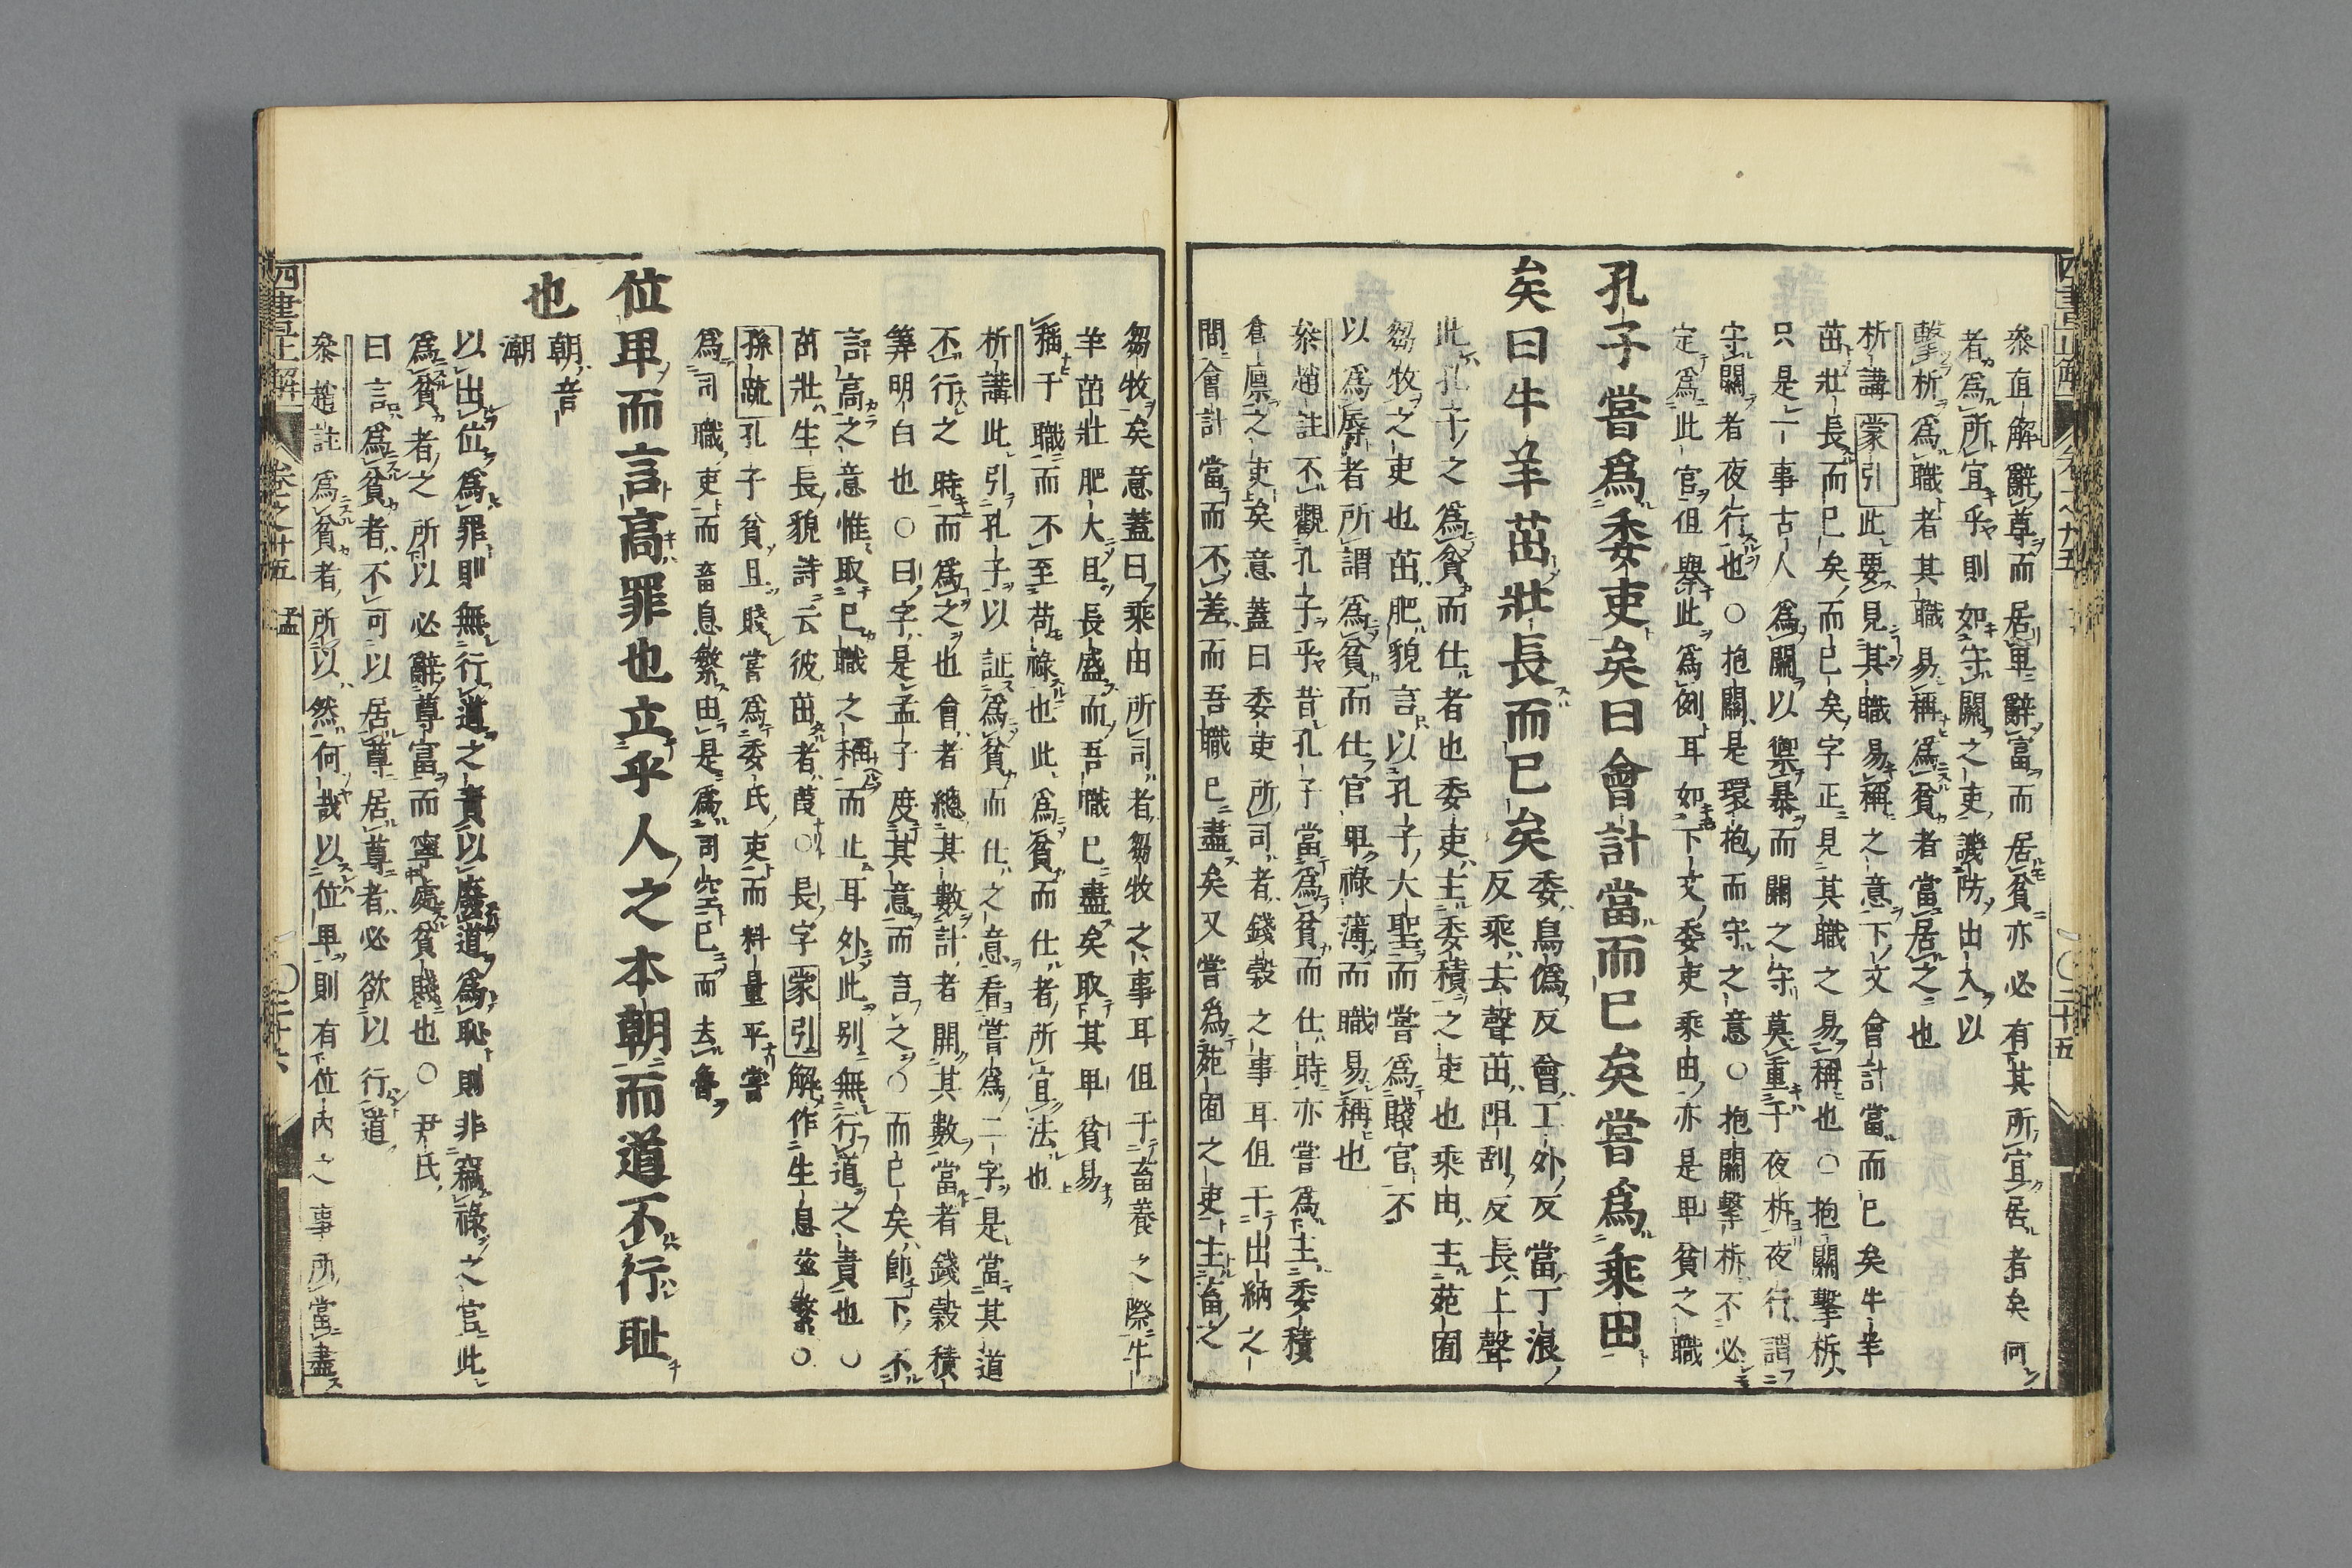 四書正解 卷之十五 孟 ○二十五
叅直解辭尊而居卑辭富而居貧亦必有其所宜居者矣何
者爲所宜乎則如守關之吏譏防出入以
擊柝爲職者其職易稱爲貧者當居之也
析講蒙引此要見其職易稱之意下文會計當而已矣牛羊
茁壯長而已矣而已矣字正見其職之易稱也○抱關擊柝
只是一事古人爲關以禦暴而關之守莫重于夜柝夜行謂
守關者夜行也○抱關是環抱而守之意○抱關擊柝不必
定爲此官但舉此爲例耳如下文委吏乘田亦是卑貧之職
孔子嘗爲委吏矣曰會計當而已矣嘗爲乘田
矣曰牛羊茁壯長而已矣
委烏僞反會工外反當丁浪
反乘去聲茁阻刮反長上聲
此孔子之爲貧而仕者也委吏主委積之吏也乘田主苑囿
芻牧之吏也茁肥貌言以孔子大聖而嘗爲賤官不
以爲辱者所謂爲貧而仕官卑祿薄而職易稱也
叅趙註不觀孔子乎昔孔子當爲貧而仕時亦嘗爲主委積
倉廩之吏矣意蓋曰委吏所司者錢穀之事耳但于出納之
間會計當而不差而吾職已盡矣又嘗爲苑囿之吏主畜之
芻牧矣意蓋曰乘田所司者芻牧之事耳但于畜養之際牛
羊茁壯肥大且長盛而吾職已盡矣取其卑貧易
稱于職而不至苟祿也此爲貧而仕者所宜法也
析講此引孔子以証爲貧而仕之意看嘗爲二字是當其道
不行之時而爲之也會者總其數計者開其數當者錢穀積
筭明白也○曰字是孟子度其意而言之○而已矣帥下不
言高之意惟取已職之稱而止耳外此别無行道之責也○
茁壯生長貌詩云彼茁者葭○長字蒙引解作生息茲繁○
孫疏孔子貧且賤嘗爲委氏吏而料量平嘗
爲司職吏而畜息繁由是爲司空已而去魯
位卑而言高罪也立乎人之本朝而道不行耻
也
朝音
潮
以出位爲罪則無行道之責以廢道爲恥則非竊祿之官此
爲貧者之所以必辭尊富而寧處貧賤也○尹氏
曰言爲貧者不可以居尊居尊者必欲以行道
叅趙註爲貧者所以然何哉以位卑則有位內之事所當盡
四書正解 卷之十五 孟 ○二十六